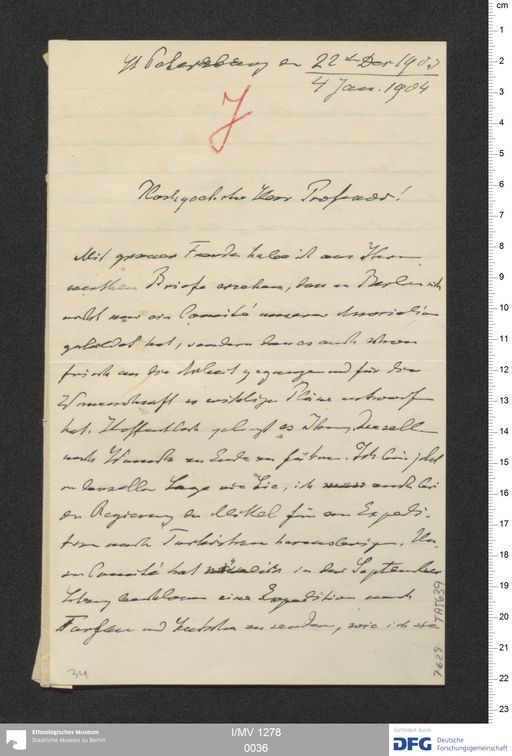 St Petersburg den 22ten Dec 1903
4 Jan. 1904
J
Hochgeehrter Herr Professor!
Mit grosser Freude habe ich aus Ihrem
werthen Briefe ersehen, dass in Berlin sich
nicht nur ein Comité unserer Association
gebildet hat, sondern dass es auch schon
frisch an die Arbeit gegangen und für die
Wissenschaft so wichtige Pläne entworfen
hat. Hoffentlich gelingt es Ihnen dieselben
nach Wunsch zu Ende zu führen. Ich bin jetzt
in derselben Lage wie Sie, ich muss auch bei
der Regierung die Mittel für eine Expedi-
tion nach Turkistan herausbringen. Un-
ser Comité hat in der September
Sitzung beschlossen eine Expedition nach
Turfan und Kutscha zu senden, wie ich
34
7629
TAT639
cm
1
2
3
4
5
6
7
8
9
10
11
12
13
14
15
16
17
18
19
20
21
22
23
Ethnologisches Museum
Staatliche Museen zu Berlin
I/MV 1278
0036
Gefördert durch
DFG Deutsche
Forschungsgemeinschaft